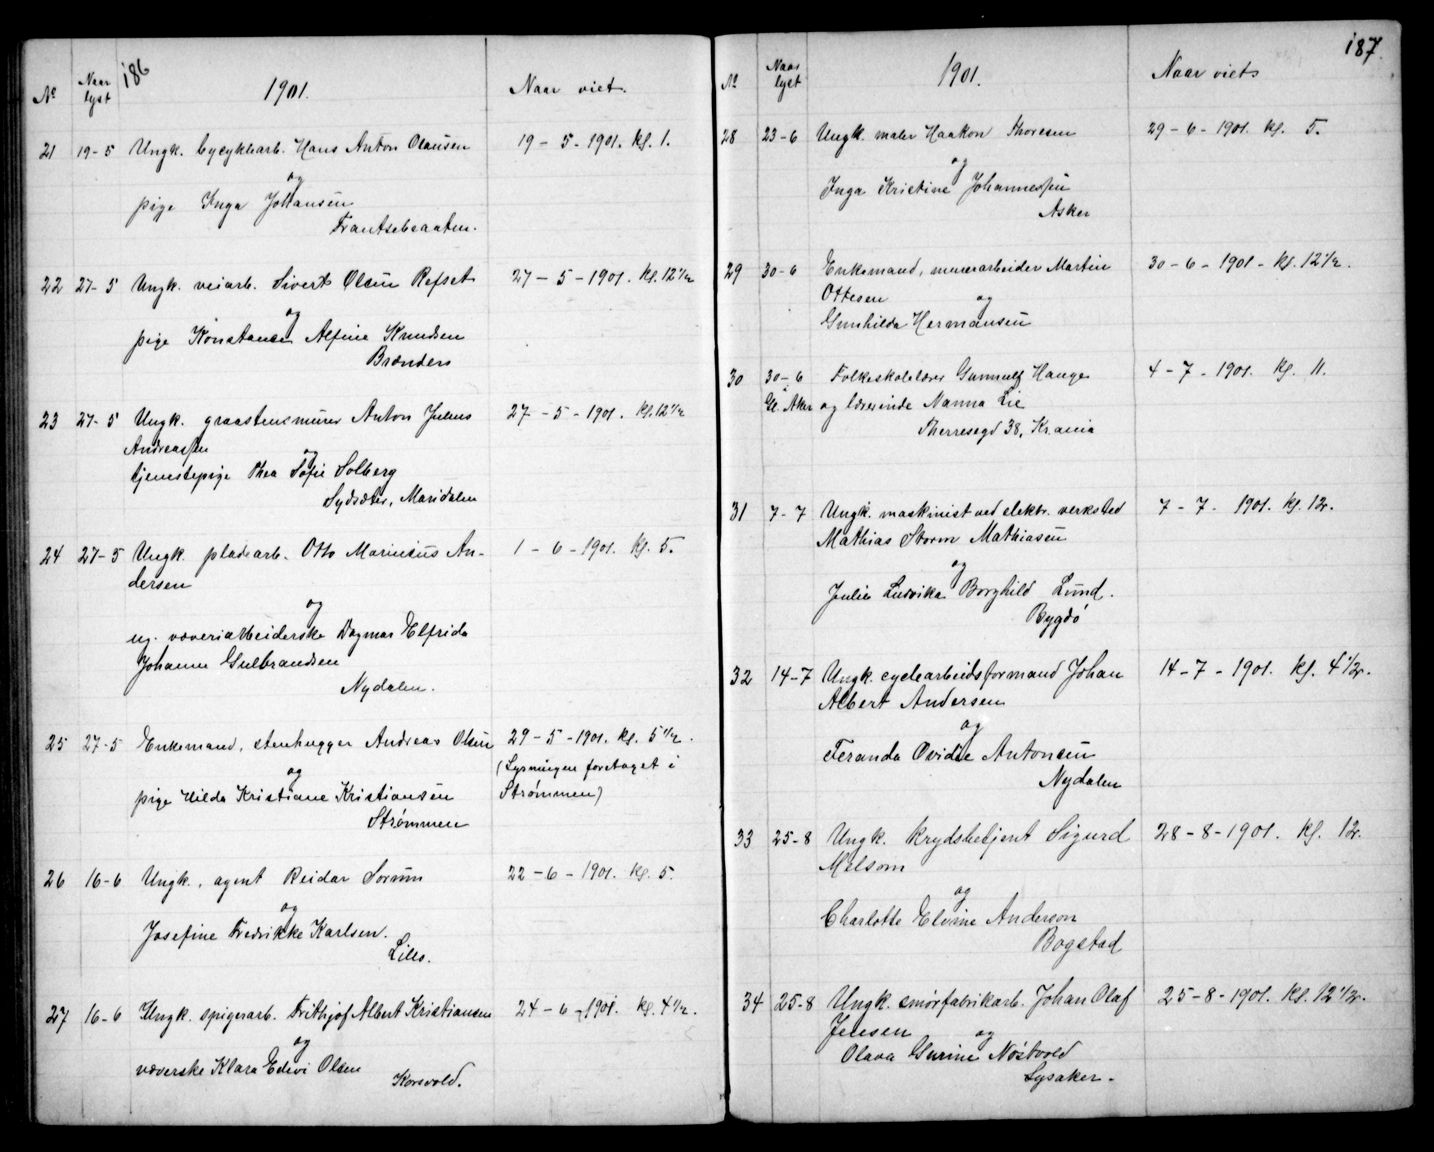 186
No Naar lyst 1901. Naar viet.
21 19-5 Ungk. bycyklearb. Hans Anton Olausen 19 - 5 - 1901. kl. 1.
og
pige Inga Johansen
Frantsebraaten.
22 27-5 Ungk. veiarb. Sivert Olsen Refset 27 - 5 - 1901. kl. 12 1/2
og
pige Konstance Alfine Knudsen
Brænderi
23 27-5 Ungk. graastensmurer Anton Julius 27 - 5 - 1901. kl. 12 1/2
Andreassen
og
tjenestepige Thea Sofie Solberg
Sydsæter, Maridalen
24 27-5 Ungk. pladearb. Otto Marinius An- 1 - 6 - 1901. kl. 5.
dersen
og
ug. væveriarbeiderske Dagmar Elfrida
Johanne Gulbrandsen
Nydalen.
25 27-5 Enkemand, stenhugger Andreas Olsen 29 - 5 - 1901. kl. 5 1/2.
og (Lysningen foretaget i
pige Hilda Kristiane Kristiansen Strømmen)
Strømmen
26 16-6 Ungk., agent Reidar Sørum 22 - 6 - 1901. kl. 5.
og
Josefine Fredrikke Karlsen.
Lills.
27 16-6 Ungk. spigerarb. Frithjof Albert Kristiansen 24 - 6 - 1901. kl. 4 1/2.
og
væverske Klara Edevi Olsen
Korsvold.
187.
No Naar lyst 1901. Naar viets
28 23-6 Ungk. maler Haakon Thoresen 29 - 6 - 1901. kl. 5.
og
Inga Kristine Johannessen
Asker
29 30-6 Enkemand, murerarbeider Martin 30 - 6 - 1901 - kl. 12 1/2.
Ottesen og
Gunhilda Hermansen
30 30-6 Folkeskolelærer Gunnulf Hauge 4 - 7 - 1901. kl. 11.
Gl. Aker og lærerinde Nanna Lie
Therresegd 38, Krania
31 7-7 Ungk. maskinist ved elektr. verksted 7 - 7 - 1901. kl. 12.
Mathias Storm Mathiasen
og
Julie Ludvika Borghild Lund.
Bygdö
32 14-7 Ungk. cyclearbeidsformand Johan 14 - 7 - 1901. kl. 4 1/2.
Albert Andersen
og
Feranda Ovidie Antonsen
Nydalen
33 25-8 Ungk. krydsbetjent Sigurd 28 - 8 - 1901. kl. 12.
Melsom
og
Charlotte Elvine Anderson
Bogstad
34 25-8 Ungk. smørfabrikarb. Johan Olaf 25 - 8 - 1901. kl. 12 1/2.
Jensen og
Olava Gurine Nöstvold
Lysaker.